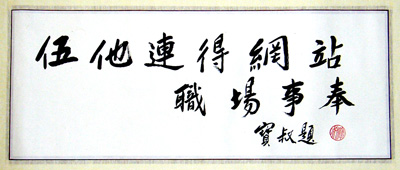 伍他連得網站
職場事奉
寶叔題